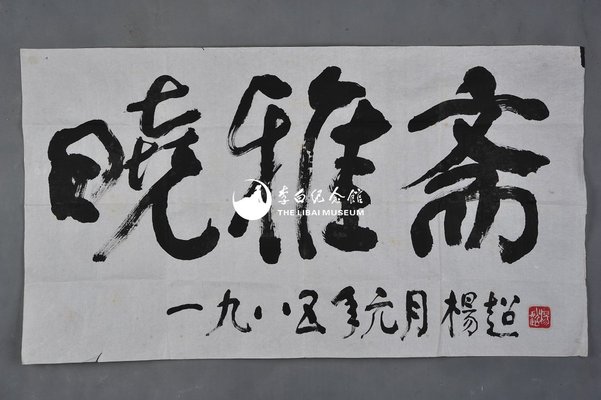 晓雅斋
李白纪念馆
THE LIBAI MUSEUM
一九八五年元月杨超